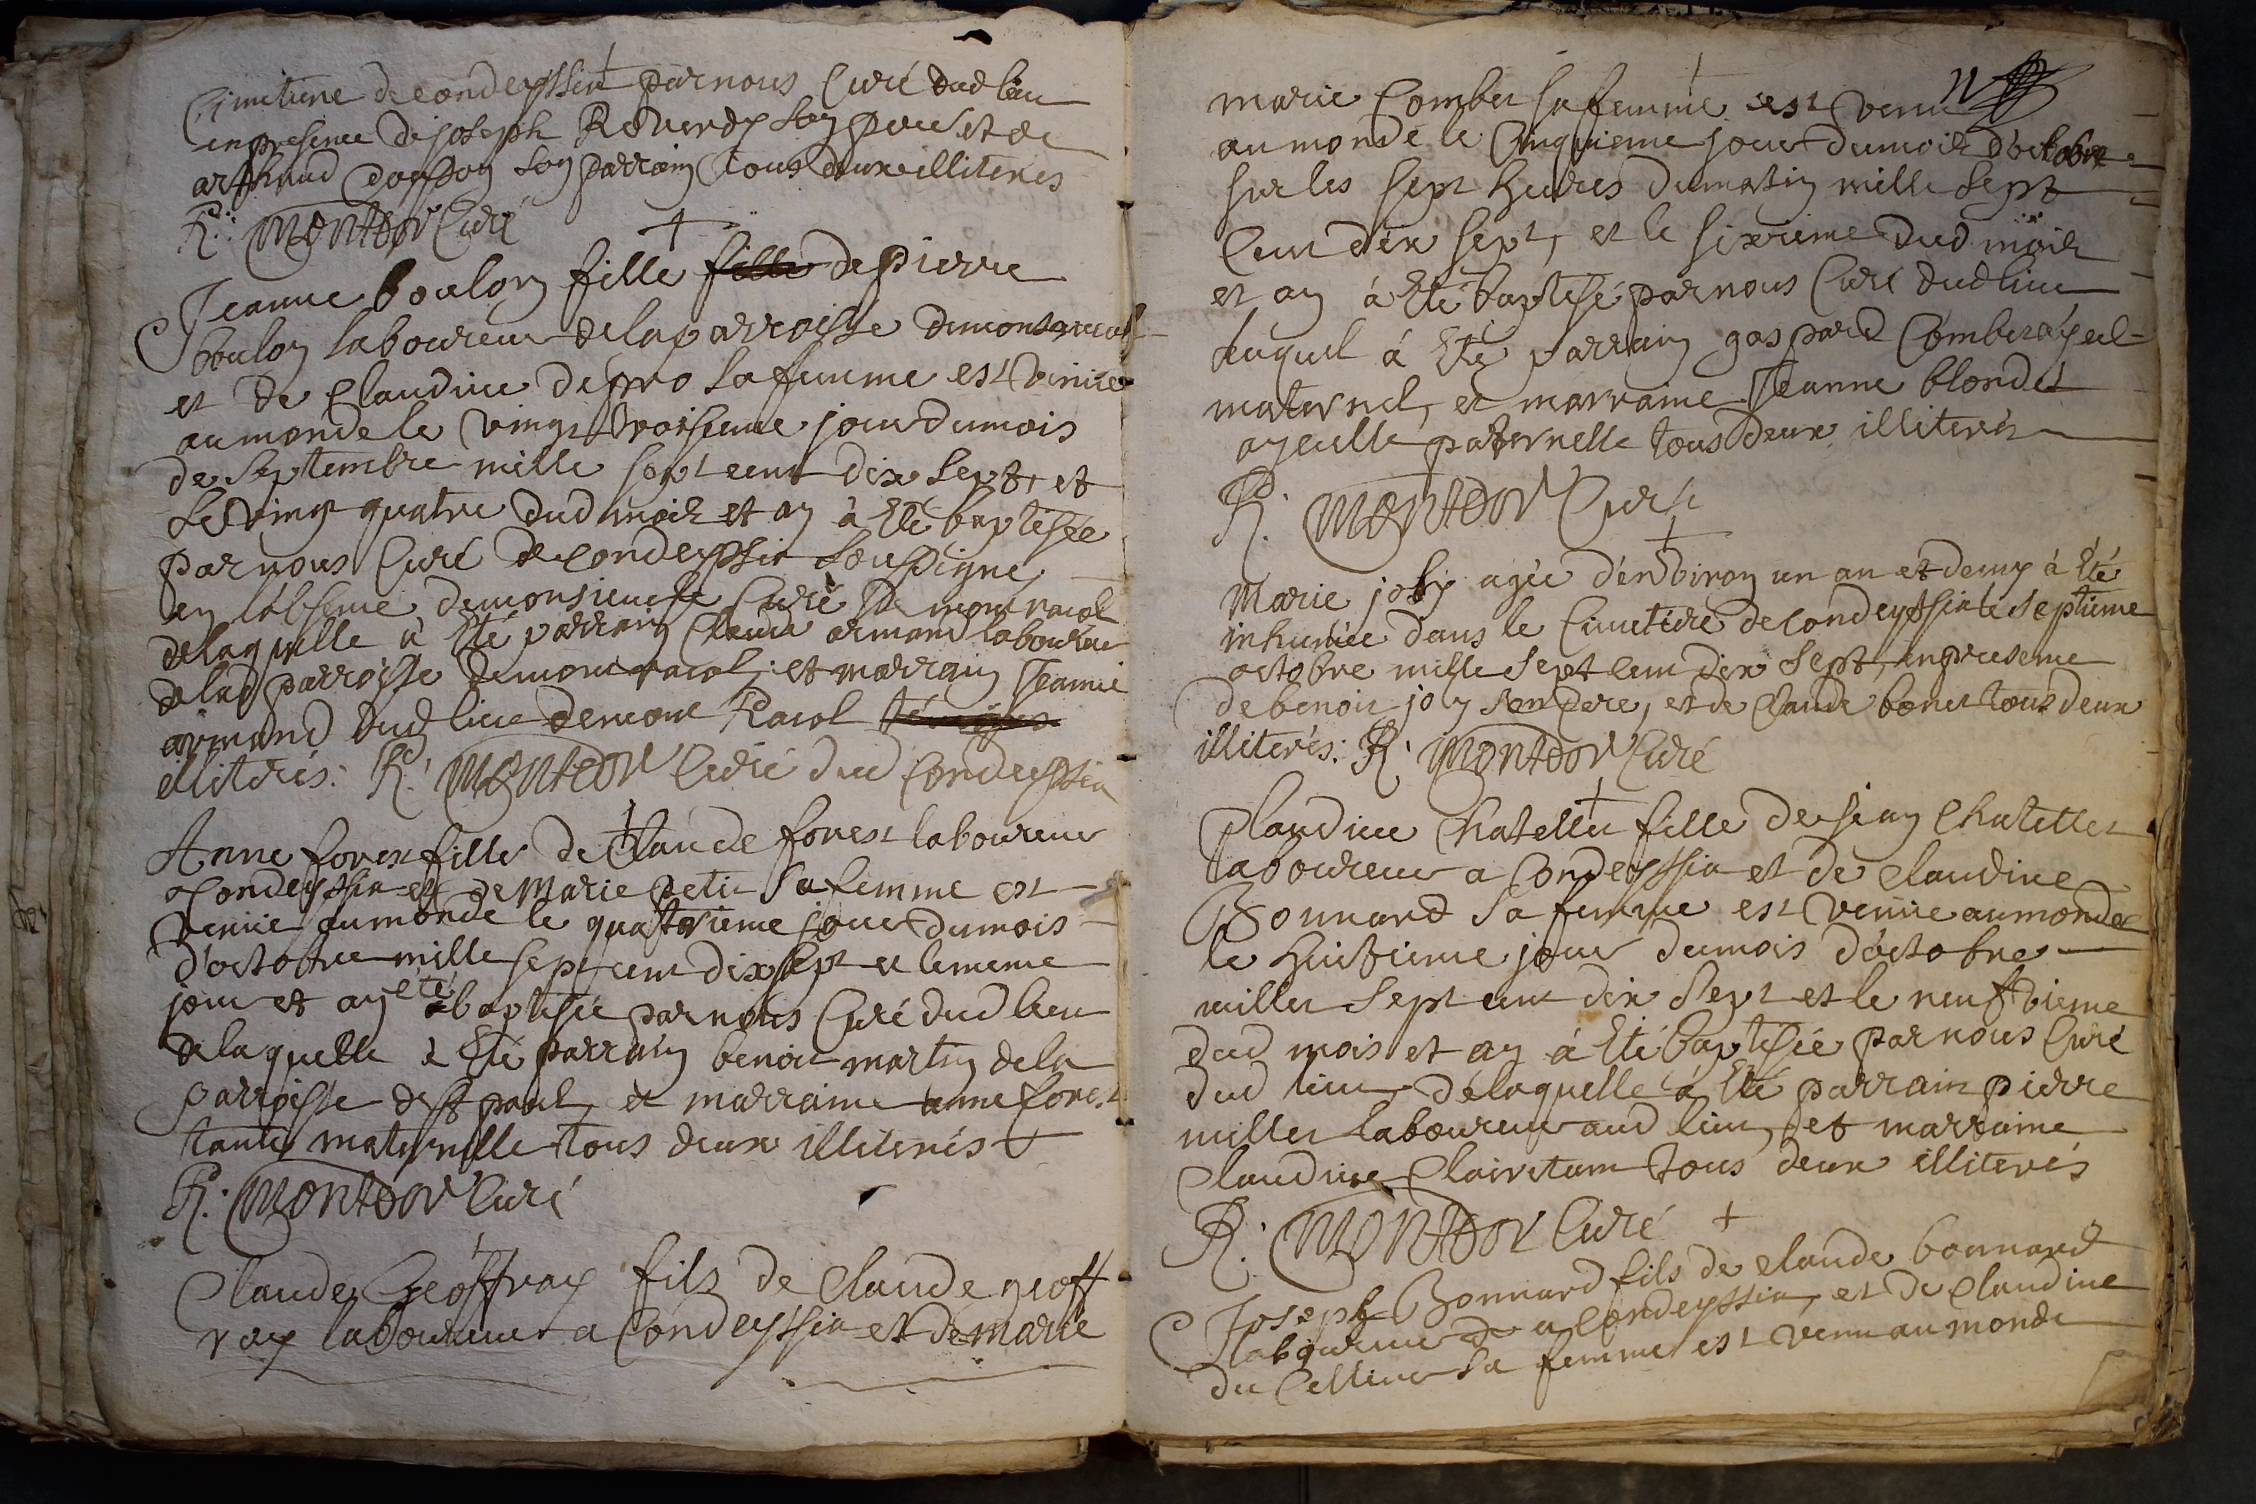 Cimetiere de condeyssia par nous Curé dud lieu
en presence de joseph Reverdy son pere et de
arthaud son parrain tous deux illiterés
R. MONTDOR Curé
Jeanne boulon fille fille de pierre
boulon laboureur de la parroisse de montracol
et de Claudine depro sa femme est venüe
au monde le vingt troisieme jour du mois
de septembre mille sept cent dix sept, et
le vingt quatre dud mois et an à Eté baptisée
par nous Curé de Condeyssia soussigné,
en l'absence de monsieur le Curé de montracol
de laquelle à Eté parrain Claude armand laboureur
de lad parroisse de montracol, et marrain Jeanne
armand dud lieu de mont Racol
illiterés: R. MONTDOR Curé dud Condeyssia
Anne forest fille de Claude forest laboureur
a Condeyssia et de Marie petit sa femme est
venüe au monde le quatrieme jour du mois
d'octobre mille sept cent dix sept et le meme
jour et an à eté baptisée par nous Curé dud lieu
de laquelle à Eté parrain benoit martin de la
parroisse de st paul, et marraine anne forest
tante maternelle tous deux illiterés
R. MONTDOR Curé
Claude Geoffray fils de Claude geoff
ray laboureur a Condeyssia et de Marie
marie Combet sa femme est venu
au monde le Cinquieme jour du mois d'octobre
sur les sept heures du matin mille sept
Cent dix sept, et le sixieme dud mois
et an à Eté baptisé par nous Curé dud lieu
duquel à Eté parrain gaspard Combet ayeul
maternel, et marraine Jeanne blondet
ayeulle paternelle tous deux illiterés
R. MONTDOR Curé
Marie joly agée d'environ un an et demy à Eté
inhumée dans le Cimetiere de Condeyssia le septieme
octobre mille sept cent dix sept, en presence
de benoit joly son pere, et de Claude bonet tous deux
illiterés: R. MONTDOR Curé
Claudine Chatellet fille de jean Chatellet
laboureur a Condeyssia et de Claudine
Bonnard sa femme est venüe au monde
le huitieme jour du mois d'octobre
mille sept cent dix sept et le neuftieme
dud mois et an à Eté baptisée par nous Curé
dud lieu de laquelle à Eté parrain pierre
millet laboureur aud lieu, et marraine
Claudine tous deux illiterés
R. MONTDOR Curé
Joseph Bonnard fils de Claude bonnard
laboureur a Condeyssia, et de Claudine
du Cellier sa femme est venu au monde